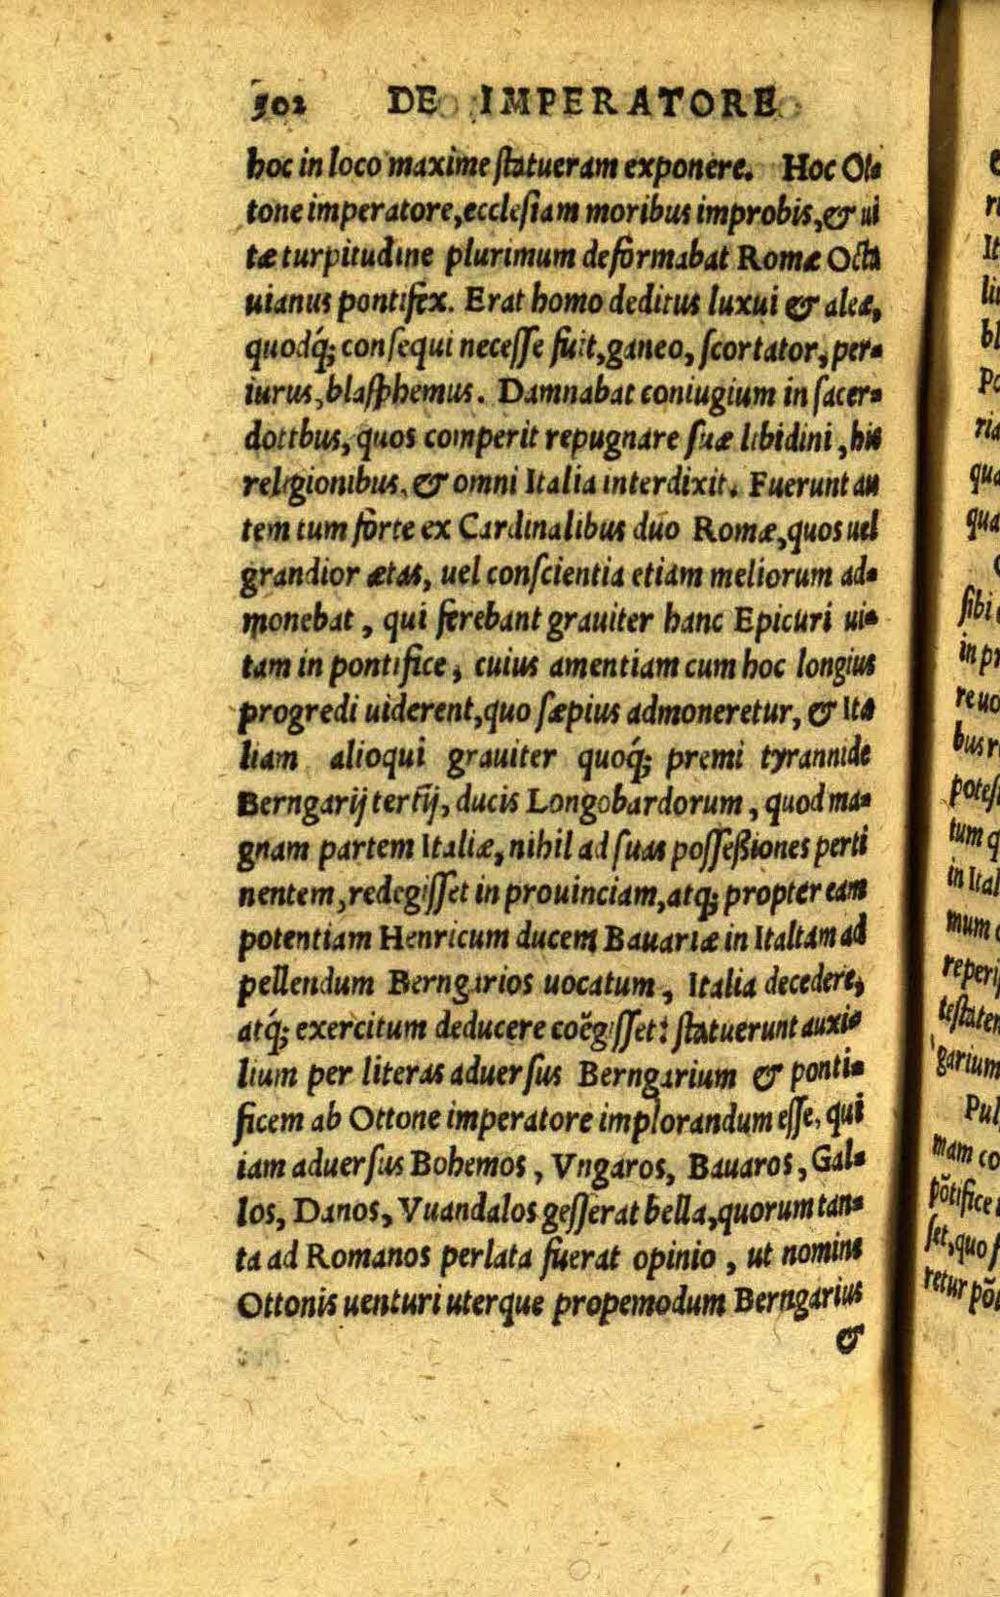 302 DE IMPERATORE
hoc in loco maxime ſtatueram exponere. Hoc Ot-
tone imperatore, eccleſiam moribus improbis, & ui
tæ turpitudine plurimum deformabat Romæ Octa
uianus pontifex. Erat homo deditus luxui & aleæ,
quodq́; conſequi neceſſe fuit, ganeo, ſcortator, per-
iurus, blaſphemus. Damnabat coniugium in ſacer-
dotibus, quos comperit repugnare ſuæ libidini, his
religionibus, & omni Italia interdixit. Fuerunt au
tem tum forte ex Cardinalibus duo Romæ, quos uel
grandior ætas, uel conſcientia etiam meliorum ad-
monebat, qui ferebant grauiter hanc Epicuri ui-
tam in pontifice, cuius amentiam cum hoc longius
progredi uiderent, quo ſæpius admoneretur, & Ita
liam alioqui grauiter quoq́; premi tyrannide
Berngarij tertij, ducis Longobardorum, quod ma-
gnam partem Italiæ, nihil ad ſuas poſſeßiones perti
nentem, redegiſſet in prouinciam, atq; propter eam
potentiam Henricum ducem Bauariæ in Italiam ad
pellendum Berngarios uocatum, Italia decedere,
atq́; exercitum deducere coëgiſſet: ſtatuerunt auxi-
lium per literas aduerſus Berngarium & ponti-
ficem ab Ottone imperatore implorandum eſſe, qui
iam aduerſus Bohemos, Vngaros, Bauaros, Gal-
los, Danos, Vuandalos geſſerat bella, quorum tan-
ta ad Romanos perlata fuerat opinio, ut nomine
Ottonis uenturi uterque propemodum Berngarius
&
ri
It
li
bl
Po
ria
qua
qua
ſibi
in pr
re uo
bus r
poteſ
tum q
in Ital
mum
reperi
teſtaten
garium
Pul
mam co
põtifice
ſet, quo ſ
retur põ